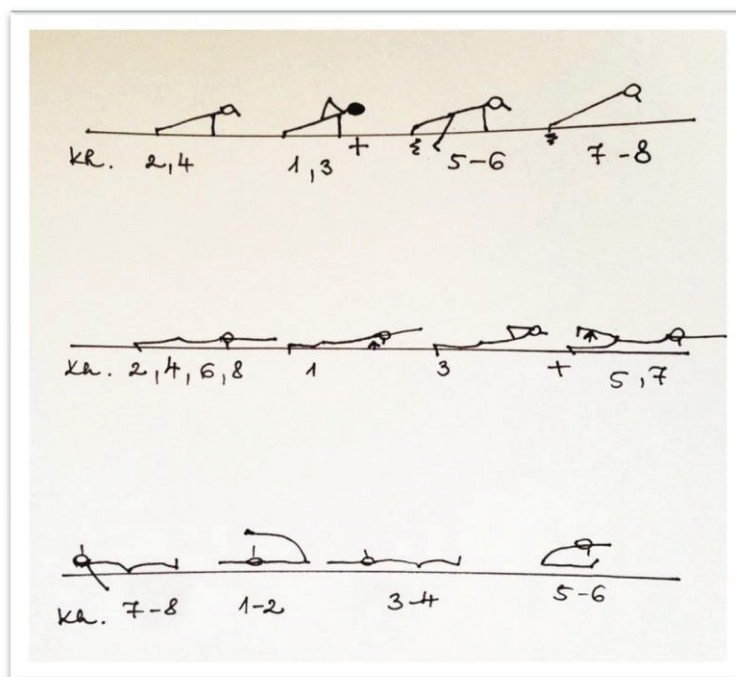 KR. 2,4 1,3 + 5-6 7-8
KR. 2,4,6,8 1 3 + 5,7
KR. 7-8 1-2 3-4 5-6